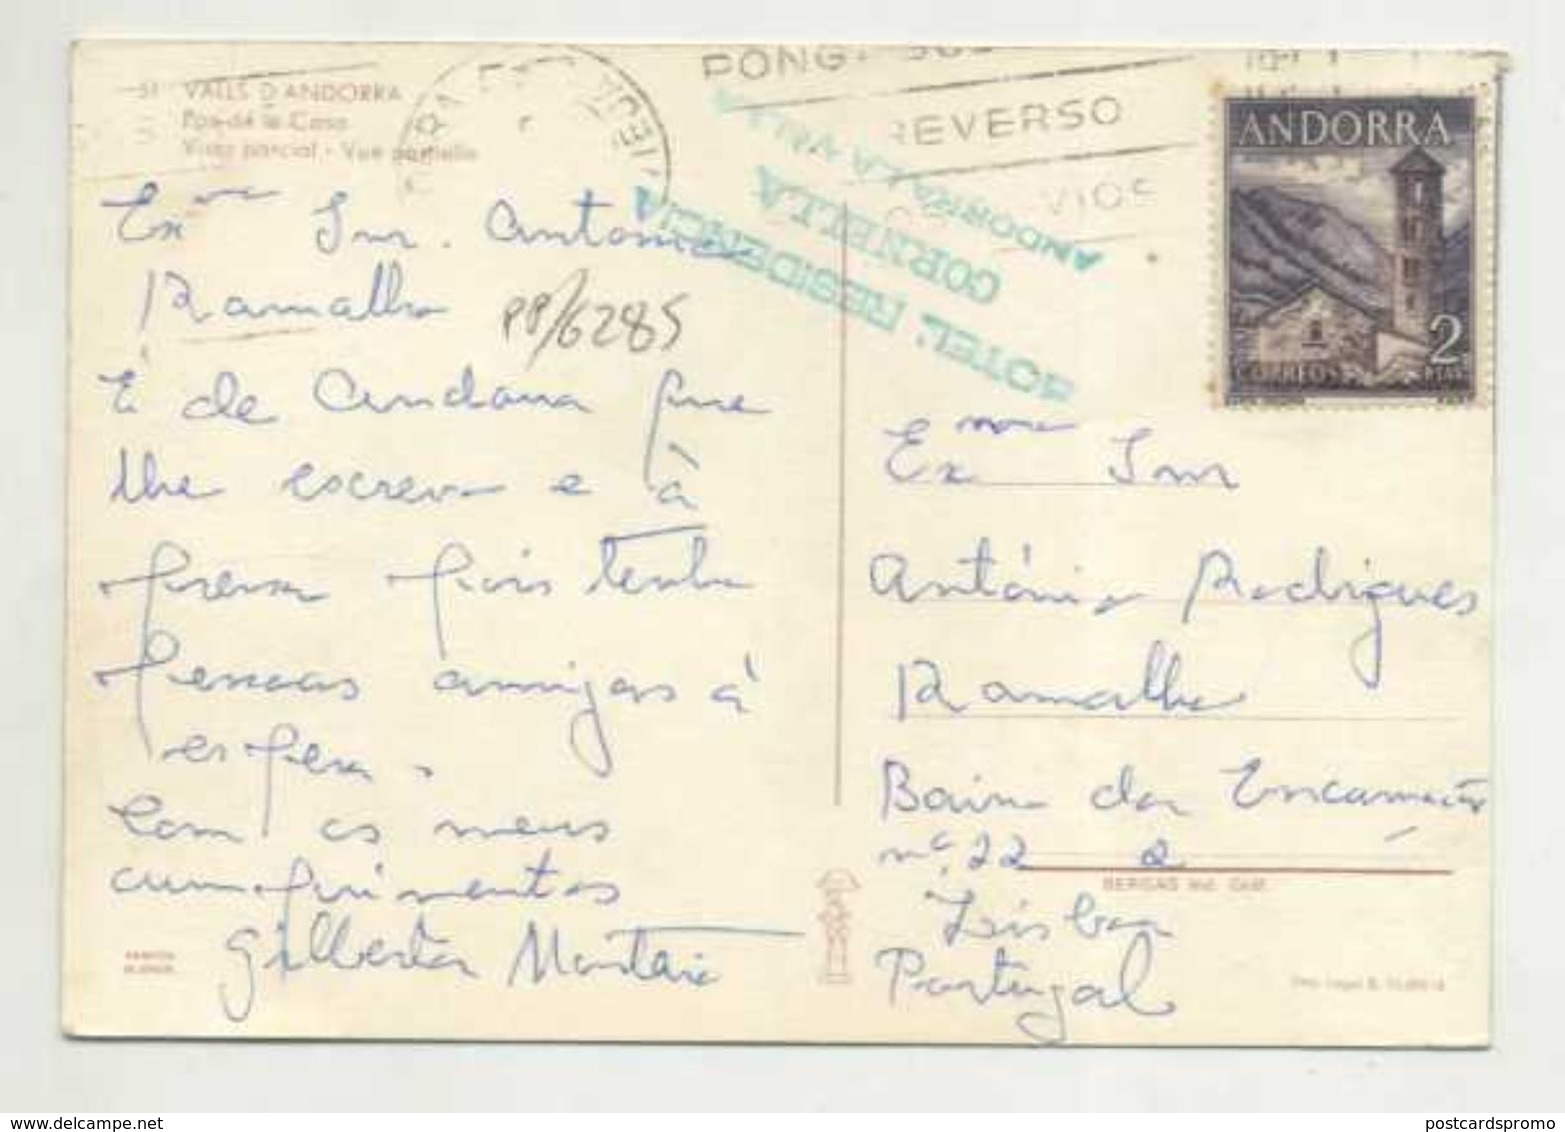 51 VALLS D'ANDORRA
Pas de la Casa
Vista parcial - Vue partielle
REVERSO
HOTEL RESIDENCIA
CORNELLA
ANDORRA LA VELLA
ANDORRA
2
PTAS
CORREOS
Exmo Snr. António
Ramalho
PP/6285
É de Andorra que
lhe escrevo e à
pressa pois tenho
pessoas amigas à
espera.
Com os meus
cumprimentos
Gilberto Monteiro
Exmo Snr
António Rodrigues
Ramalho
Bairro da Encarnação
nº 22 2
Lisboa
Portugal
BERGAS Ind. Graf.
postcardspromo